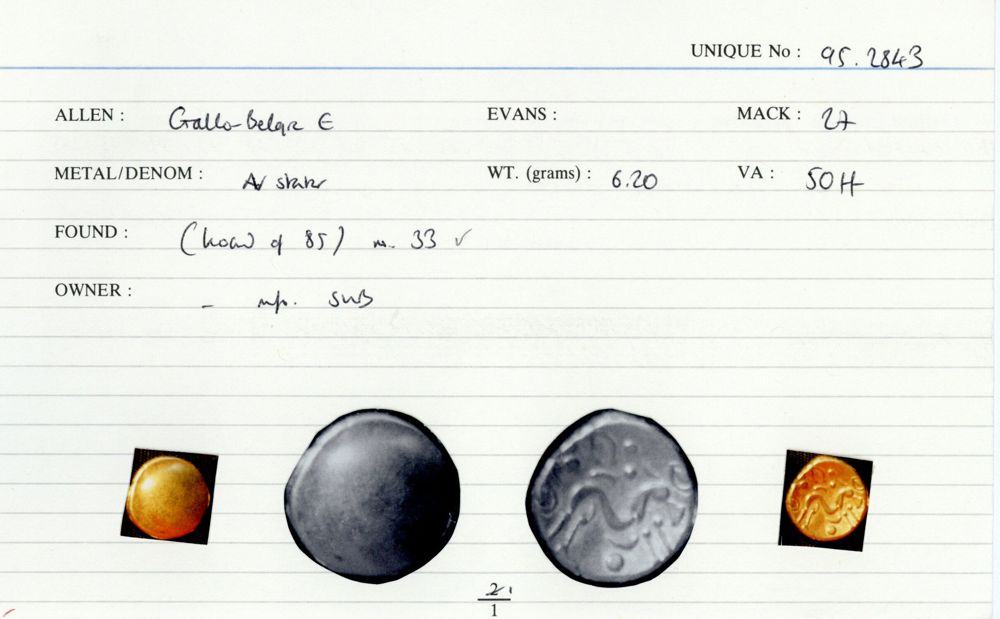 UNIQUE No : 95.2843
ALLEN : Gallo-Belgic E EVANS : MACK : 27
METAL/DENOM : AV stater WT. (grams) : 6.20 VA : 50 H
FOUND : (hoard of 85) no. 33 ✓
OWNER : -
2
1